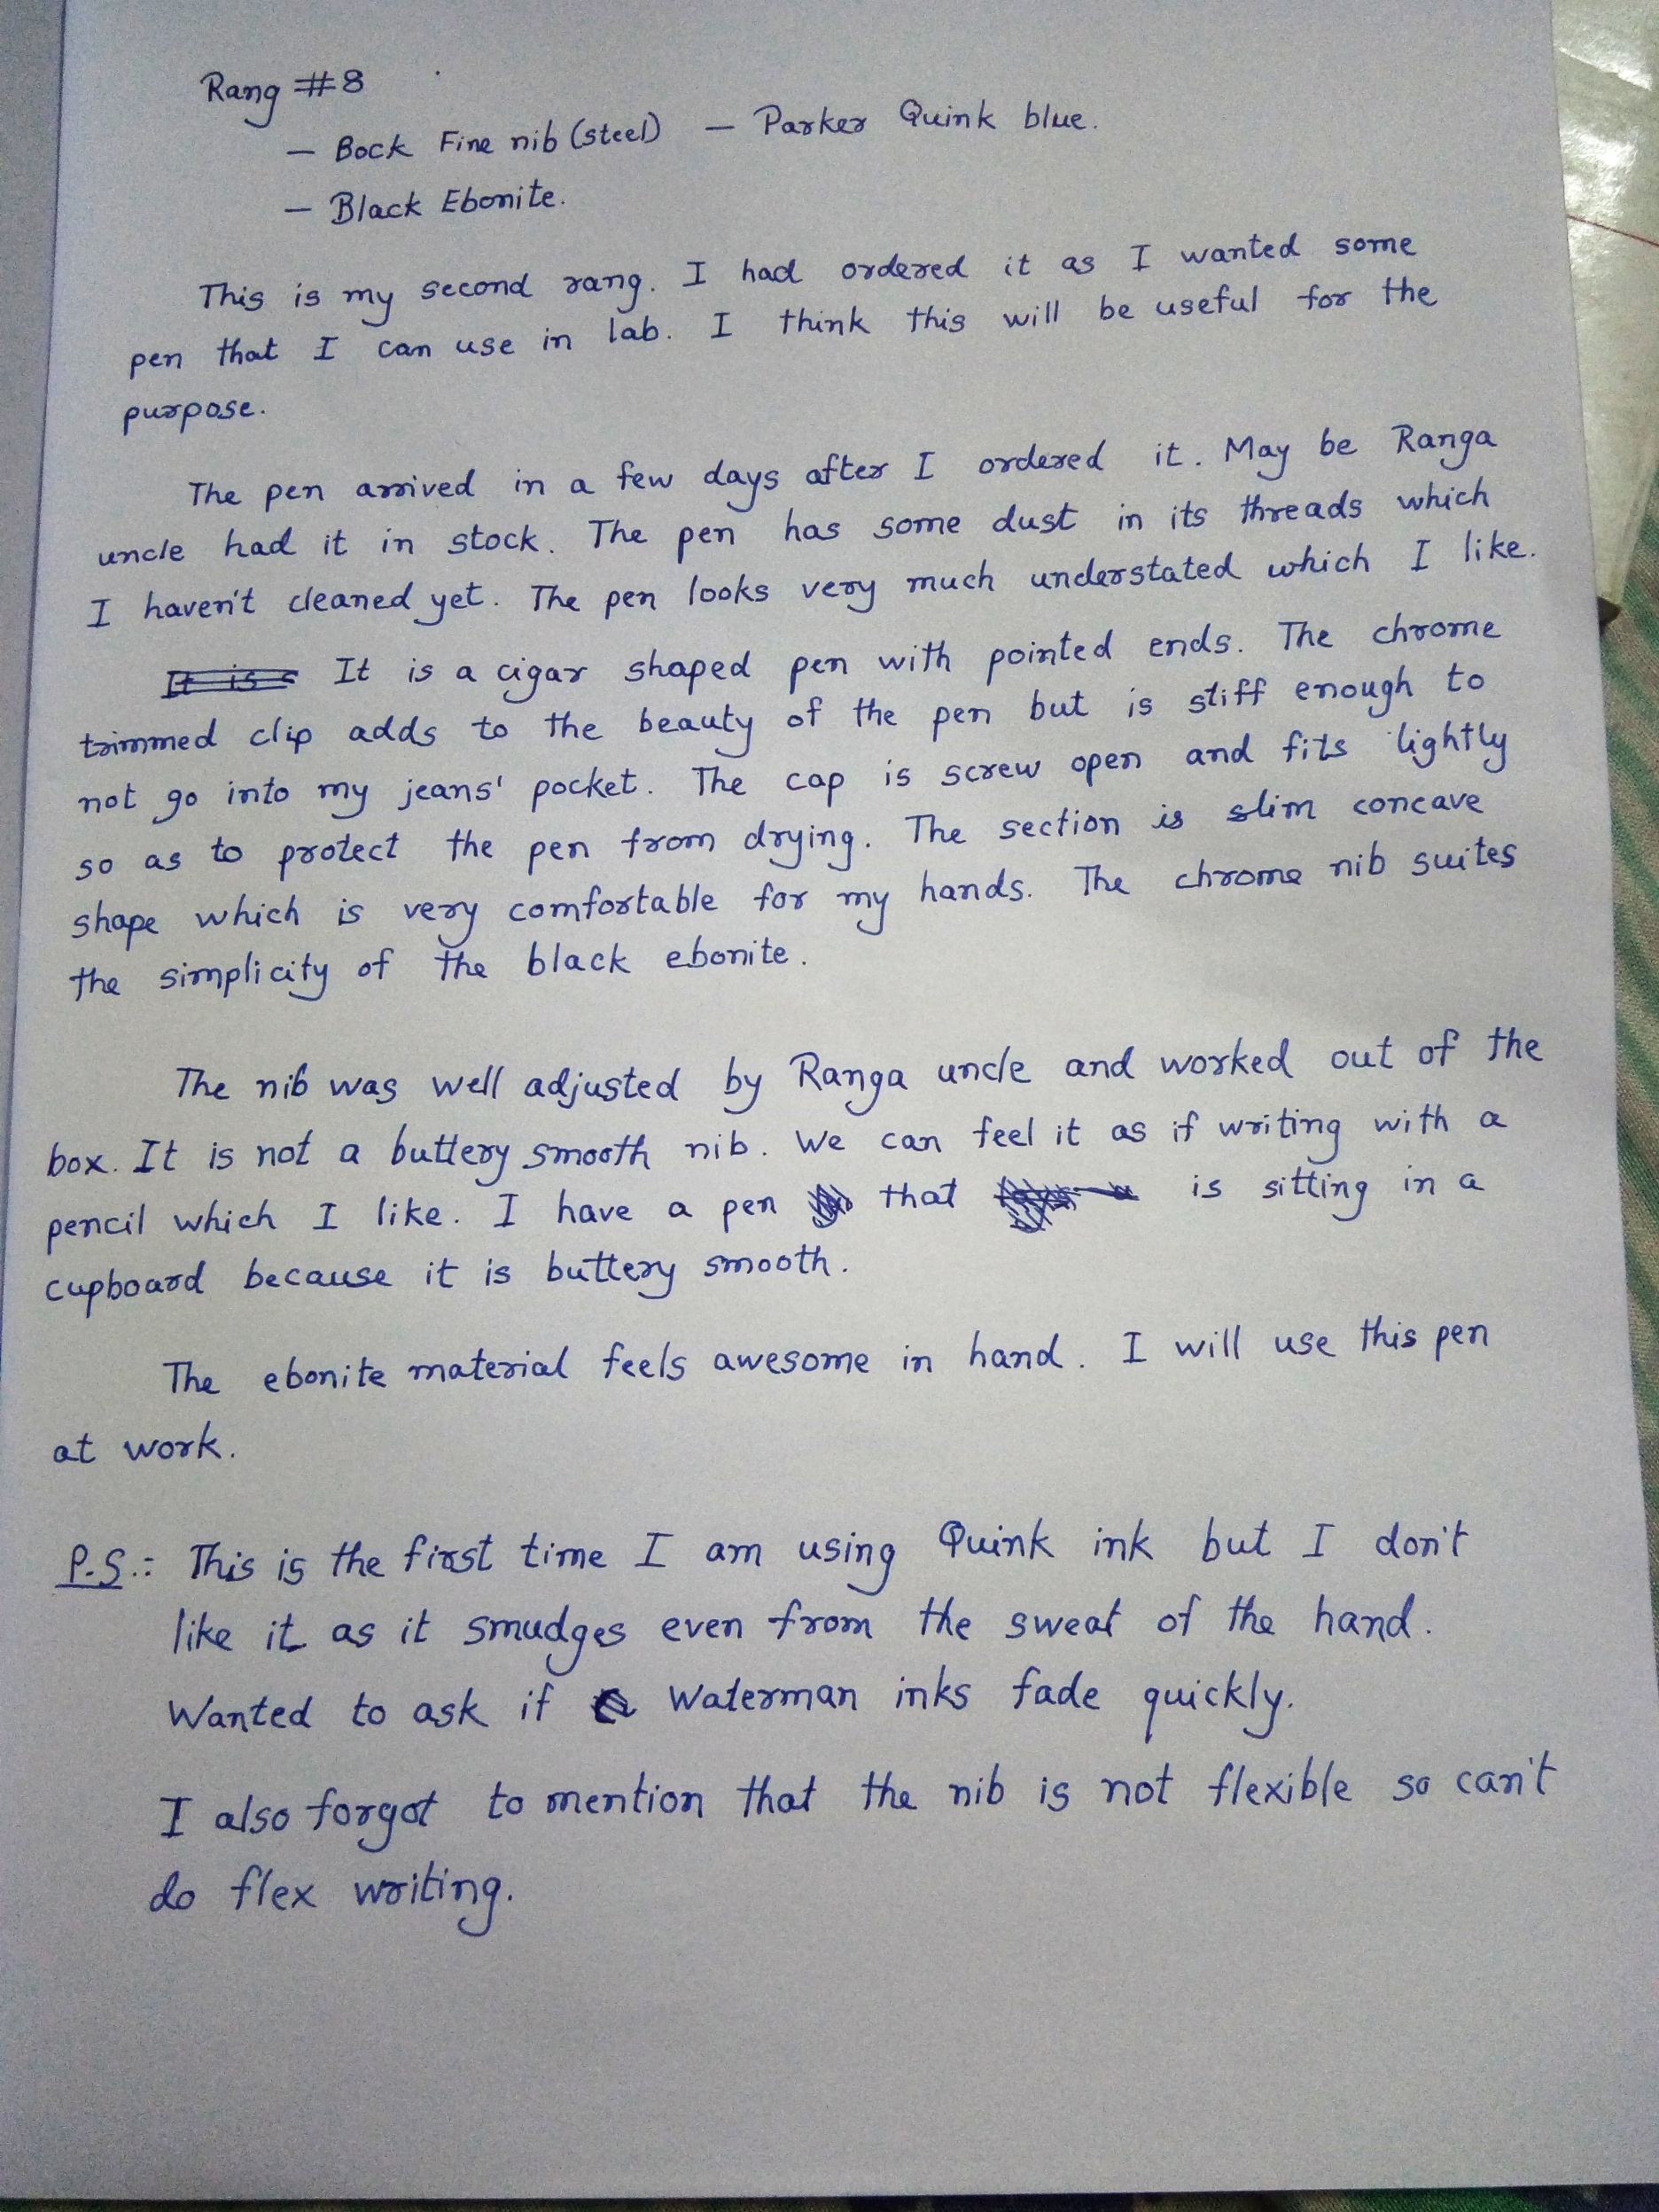 Rang #8
— Bock Fine nib (steel) — Parker Quink blue.
— Black Ebonite.
This is my second rang. I had ordered it as I wanted some
pen that I can use in lab. I think this will be useful for the
purpose.
The pen arrived in a few days after I ordered it. May be Ranga
uncle had it in stock. The pen has some dust in its threads which
I haven't cleaned yet. The pen looks very much understated which I like.
It is s It is a cigar shaped pen with pointed ends. The chrome
trimmed clip adds to the beauty of the pen but is stiff enough to
not go into my jeans' pocket. The cap is screw open and fits tightly
so as to protect the pen from drying. The section is slim concave
shape which is very comfortable for my hands. The chrome nib suites
the simplicity of the black ebonite.
The nib was well adjusted by Ranga uncle and worked out of the
box. It is not a buttery smooth nib. We can feel it as if writing with a
pencil which I like. I have a pen that is sitting in a
cupboard because it is buttery smooth.
The ebonite material feels awesome in hand. I will use this pen
at work.
P.S.: This is the first time I am using Quink ink but I don't
like it as it smudges even from the sweat of the hand.
Wanted to ask if Waterman inks fade quickly.
I also forgot to mention that the nib is not flexible so can't
do flex writing.